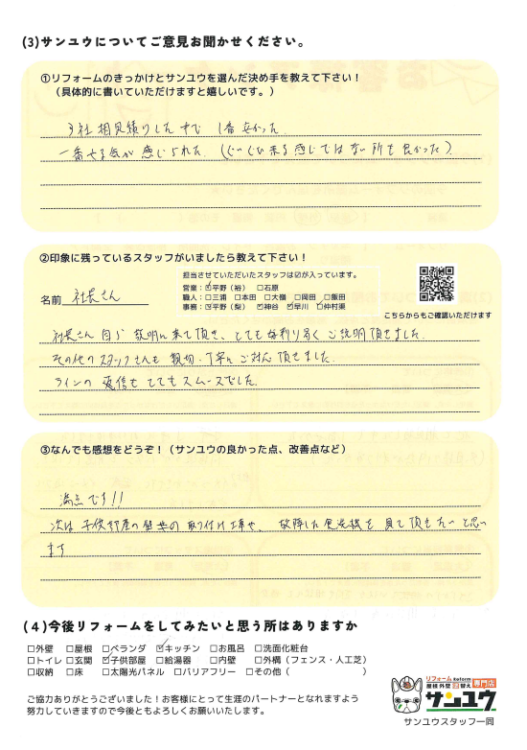 (3)サンユウについてご意見お聞かせください。
①リフォームのきっかけとサンユウを選んだ決め手を教えて下さい！
（具体的に書いていただけますと嬉しいです。）
3社相見積りした中で 1番安かった。
一番やる気が感じられた。(ぐいぐい来る感じではない所も良かった)
②印象に残っているスタッフがいましたら教えて下さい！
担当させていただいたスタッフは☑が入っています。
営業：☑平野（裕） □石原
職人：□三浦 □本田 □大條 □岡田 □飯田
事務：☑平野（梨） ☑神谷 ☑早川 ☑仲村渠
名前 社長さん
こちらからもご確認いただけます
社長さん自ら説明に来て頂き、とても分かり易くご説明頂きました。
その他のスタッフさんも親切・丁寧にご対応頂きました。
ラインの返信もとてもスムーズでした。
③なんでも感想をどうぞ！（サンユウの良かった点、改善点など）
満点です!!
次は子供部屋の の取付け工事や、故障した を見て頂きたいと思い
ます
(４)今後リフォームをしてみたいと思う所はありますか
□外壁 □屋根 □ベランダ ☑キッチン □お風呂 □洗面化粧台
□トイレ □玄関 ☑子供部屋 □給湯器 □内壁 □外構（フェンス・人工芝）
□収納 □床 □太陽光パネル □バリアフリー □その他（ ）
ご協力ありがとうございました！お客様にとって生涯のパートナーとなれますよう
努力していきますので今後ともよろしくお願いいたします。
リフォーム
屋根 外壁 専門店
サンユウ
サンユウスタッフ一同